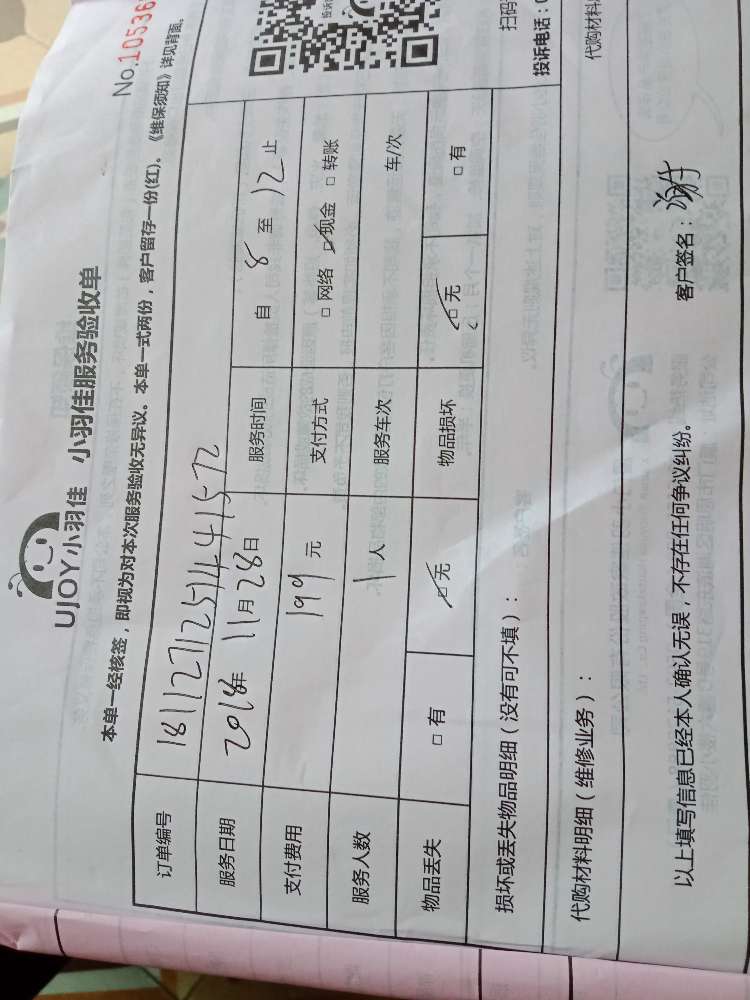 UJOY小羽佳 小羽佳服务验收单
No.10536
本单一经核签，即视为对本次服务验收无异议。本单一式两份，客户留存一份(红)。《维保须知》详见背面。
订单编号 18112712514441572
服务日期 2018年 11月28日 服务时间 自 8 至 12 止
支付费用 199 元 支付方式 □ 网络 ☑ 现金 □ 转账
服务人数 1 人 服务车次 车/次
物品丢失 □ 有 ☑ 无 物品损坏 ☑ 无 □ 有
损坏或丢失物品明细（没有可不填）：
扫码
投诉电话：0
代购材料明细（维修业务）：
代购材料
以上填写信息已经本人确认无误，不存在任何争议纠纷。
客户签名：